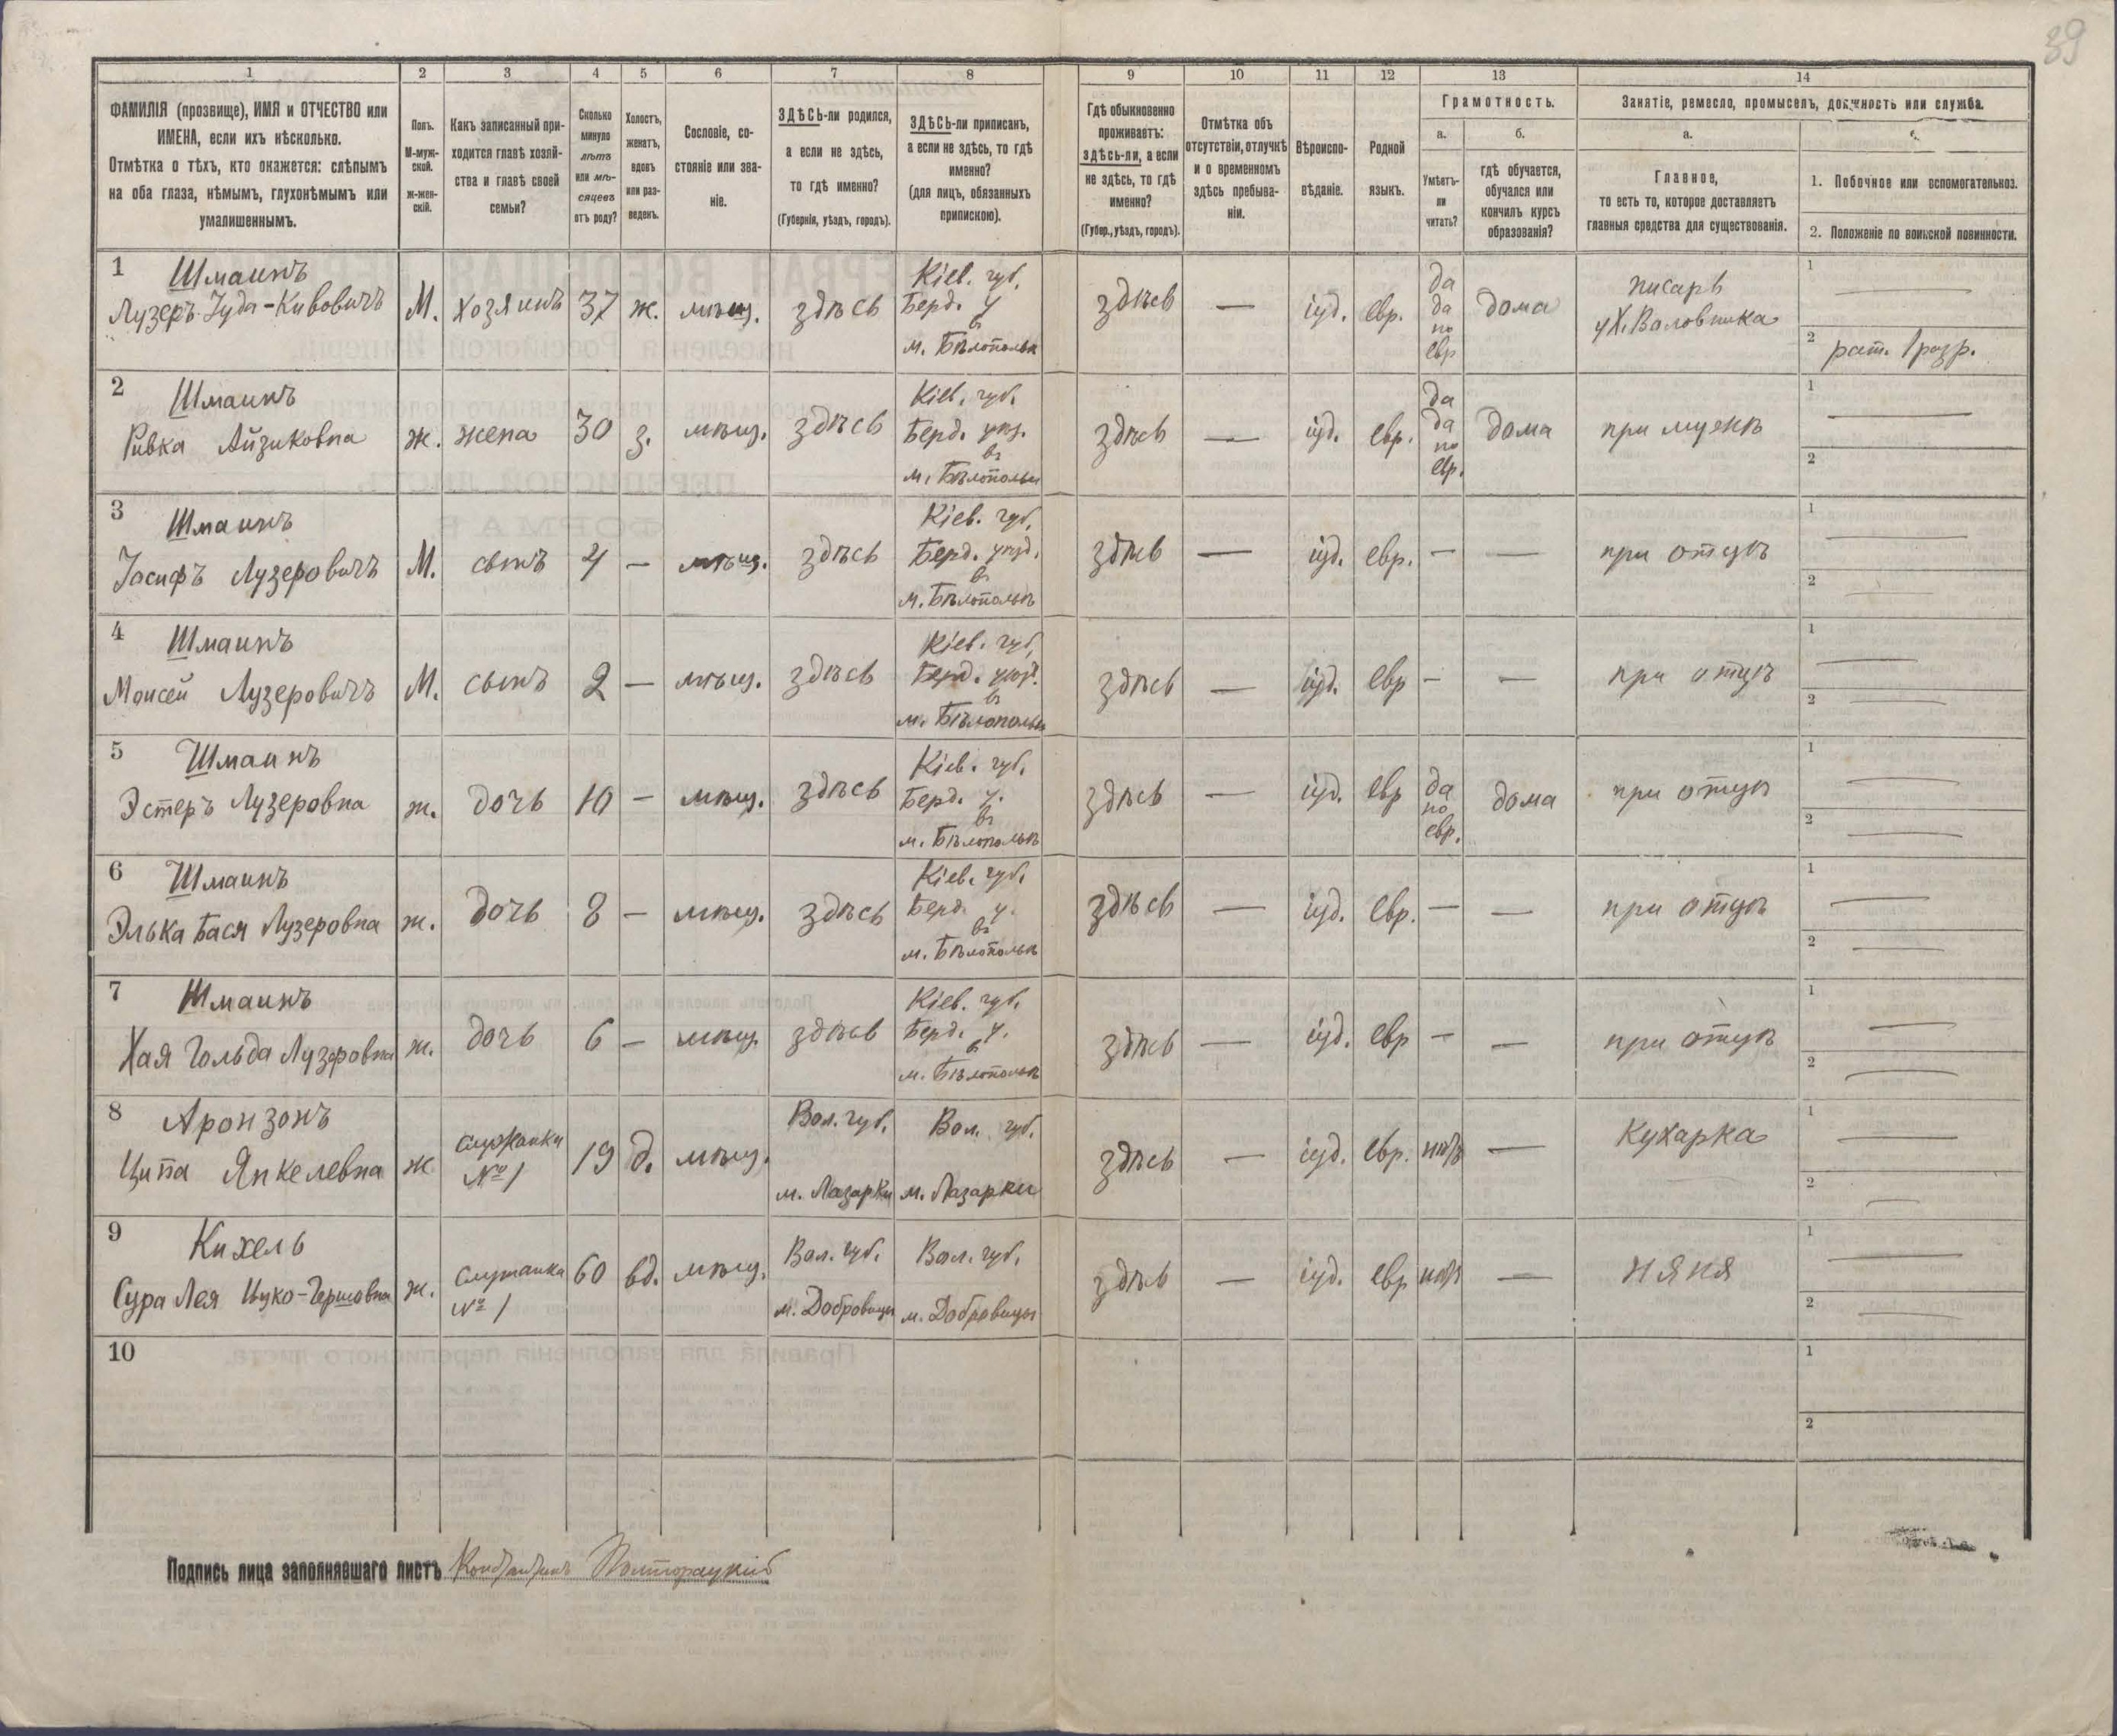 39
1 2 3 4 5 6 7 8 9 10 11 12 13 14
ФАМИЛІЯ (прозвище), ИМЯ и ОТЧЕСТВО или
ИМЕНА, если ихъ нѣсколько.
Отмѣтка о тѣхъ, кто окажется: слѣпымъ
на оба глаза, нѣмымъ, глухонѣмымъ или
умалишеннымъ.
Полъ.
М-муж-
ской.
ж-жен-
скій.
Какъ записанный при-
ходится главѣ хозяй-
ства и главѣ своей
семьи?
Сколько
минуло
лѣтъ
или мѣ-
сяцевъ
отъ роду?
Холостъ,
женатъ,
вдовъ
или раз-
веденъ.
Сословіе, со-
стояніе или зва-
ніе.
ЗДѢСЬ-ли родился,
а если не здѣсь,
то гдѣ именно?
(Губернія, уѣздъ, городъ).
ЗДѢСЬ-ли приписанъ,
а если не здѣсь, то гдѣ
именно?
(для лицъ, обязанныхъ
припискою).
Гдѣ обыкновенно
проживаетъ:
здѣсь-ли, а если
не здѣсь, то гдѣ
именно?
(Губер., уѣздъ, городъ).
Отмѣтка объ
отсутствіи, отлучкѣ
и о временномъ
здѣсь пребыва-
ніи.
Вѣроиспо-
вѣданіе.
Родной
языкъ.
Грамотность.
а.
Умѣетъ-
ли
читать?
б.
гдѣ обучается,
обучался или
кончилъ курсъ
образованія?
Занятіе, ремесло, промыселъ, должность или служба.
а.
Главное,
то есть то, которое доставляетъ
главныя средства для существованія.
1. Побочное или вспомогательное.
2. Положеніе по воинской повинности.
1 Шмаинъ
Лузеръ Іуда-Кивовичъ
М.
хозяинъ
37
ж.
мѣщ.
здѣсь
Кіев. губ.
Берд. у
въ
м. Бѣлополье
здѣсь
—
іуд.
евр.
да
да
по
евр
дома
писарь
у Х. Воловника
1 —
2 рат. 1 разр.
2 Шмаинъ
Ривка Айзиковна
ж.
жена
30
з.
мѣщ.
здѣсь
Кіев. губ.
Берд. уѣз.
въ
м. Бѣлополье
здѣсь
—
іуд.
евр.
да
да
по
евр.
дома
при мужѣ
1 —
2
3 Шмаинъ
Іосифъ Лузеровичъ
М.
сынъ
4
—
мѣщ.
здѣсь
Кіев. губ.
Берд. уѣзд.
въ
м. Бѣлопольѣ
здѣсь
—
іуд.
евр.
—
—
при отцѣ
1 —
2 —
4 Шмаинъ
Моисей Лузеровичъ
М.
сынъ
2
—
мѣщ.
здѣсь
Кіев. губ.
Берд. уѣзд.
въ
м. Бѣлополье
здѣсь
—
іуд.
евр
—
—
при отцѣ
1 —
2 —
5 Шмаинъ
Эстеръ Лузеровна
ж.
дочь
10
—
мѣщ.
здѣсь
Кіев. губ.
Берд. у.
въ
м. Бѣлопольѣ
здѣсь
—
іуд.
евр
да
по
евр.
дома
при отцѣ
1 —
2 —
6 Шмаинъ
Элька Бася Лузеровна
ж.
дочь
8
—
мѣщ.
здѣсь
Кіев. губ.
Берд. у.
въ
м. Бѣлопольѣ
здѣсь
—
іуд.
евр.
—
—
при отцѣ
1 —
2 —
7 Шмаинъ
Хая Гольда Лузеровна
ж.
дочь
6
—
мѣщ.
здѣсь
Кіев. губ.
Берд. у.
в
м. Бѣлопольѣ
здѣсь
—
іуд.
евр
—
—
при отцѣ
1 —
2 —
8 Аронзонъ
Ципа Янкелевна
ж
служанка
№ 1
19
д.
мѣщ.
Вол. губ.
м. Лазарки
Вол. губ.
м. Лазарки
здѣсь
—
іуд.
евр.
нѣтъ
—
Кухарка
1 —
2 —
9 Кихель
Сура Лея Ицко-Гершовна
ж.
служанка
№ 1
60
вд.
мѣщ.
Вол. губ.
м. Добровицы
Вол. губ.
м. Добровицы
здѣсь
—
іуд.
евр
нѣтъ
—
няня
1 —
2 —
10
1
2
Подпись лица заполнявшаго листъ Константинъ Полторацкій